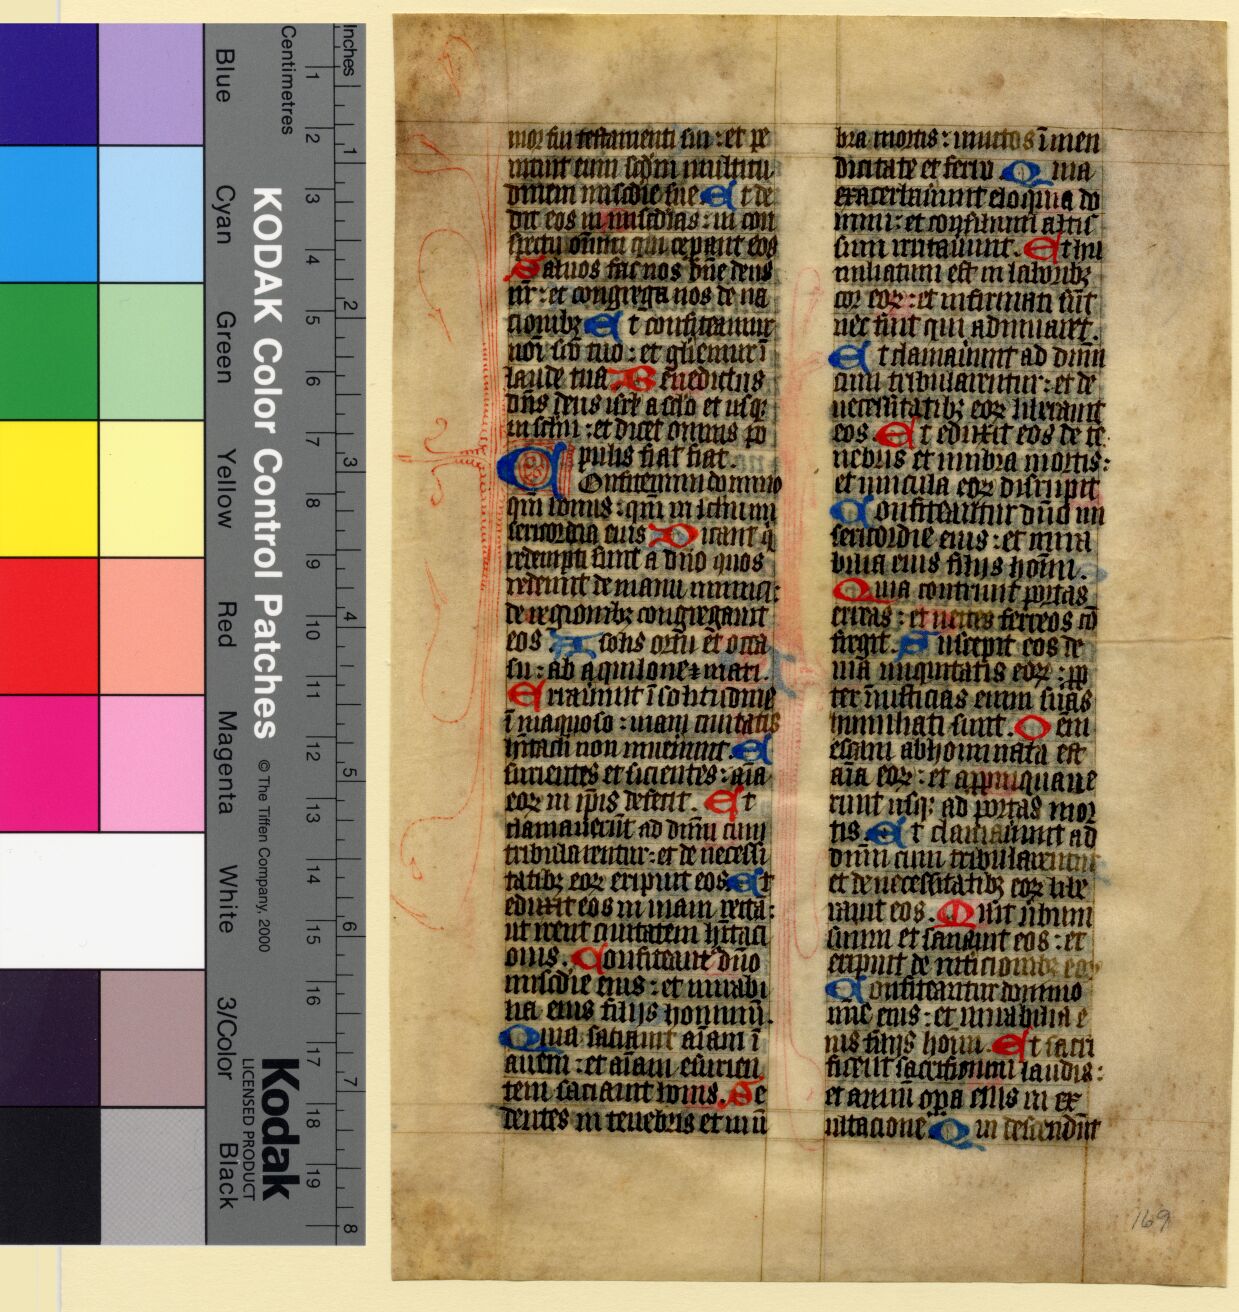 Blue
Cyan
Green
Yellow
Red
Magenta
White
3/Color
Black
KODAK Color Control Patches © The Tiffen Company, 2000
Kodak
LICENSED PRODUCT
Centimetres
1 2 3 4 5 6 7 8 9 10 11 12 13 14 15 16 17 18 19
Inches
1 2 3 4 5 6 7 8
mor fui testamenti sui : et pe
nituit eum scdm multitu
dinem miscdie sue Et de
dit eos in miscdias : in con
spectu omiu qui cepant eos
Saluos fac nos dne deus
nr : et congrega nos de na
cionibz Et confiteamur
noi sco tuo : et gliemur i
laude tua Benedictus
dns deus isrl a sclo et usq;
in sclm : et dicet omnis po
pulis fiat fiat.
Confitemini domino
qm bonus : qm in sclum mi
sericordia eius Dicant q
redempti sunt a dno quos
redemit de manu inimici:
de regionibz congregauit
eos. A solis ortu et occa
su : ab aquilone & mari.
Errauerunt i solitudine
i inaquoso : uiam ciuitatis
hitacli non inuenerunt. E
surientes et sicientes : aia
eor in ipis defecit. Et
clamauerut ad dnm cum
tribularentur : et de necessi
tatibz eor eripuit eos Et
eduxit eos in uiam recta:
ut irent ciuitatem hitaci
onis. Confiteant dno
miscdie eius : et mirabi
lia eius filijs hominu.
Quia saciauit aiam i
anem : et aiam esurien
tem saciauit bonis. Se
dentes in tenebris et um
bra mortis : uinctos i men
dicitate et ferro Quia
exacerbauerunt eloquia do
mini : et consilium altis
simi irritauerunt. Et hu
miliatum est in laboribz
cor eor : et infirmati sut
nec fuit qui adiuuaret.
Et clamauerunt ad dnm
cum tribularentur : et de
necessitatibz eor liberauit
eos. Et eduxit eos de te
nebris et umbra mortis :
et uincula eor disrupit
Confiteantur dno mi
sericordie eius : et mira
bilia eius filijs homi.
Quia contriuit portas
ereas : et uectes ferreos co
fregit. Suscepit eos de
uia iniquitatis eor : pp
ter iniusticias enim suas
humiliati sunt. Omnem
escam abhominata est
aia eor : et appropinquaue
runt usq; ad portas mor
tis. Et clamauerunt ad
dnm cum tribularentur
et de necessitatibz eor libe
rauit eos. Misit uerbum
suum et sanauit eos : et
eripuit de intericionibz eor
Confiteantur domino
mie eius : et mirabilia e
ius filijs homi. Et sacri
ficent sacrificium laudis :
et anniti opa eius in ex
ultacione Qui descendut
169